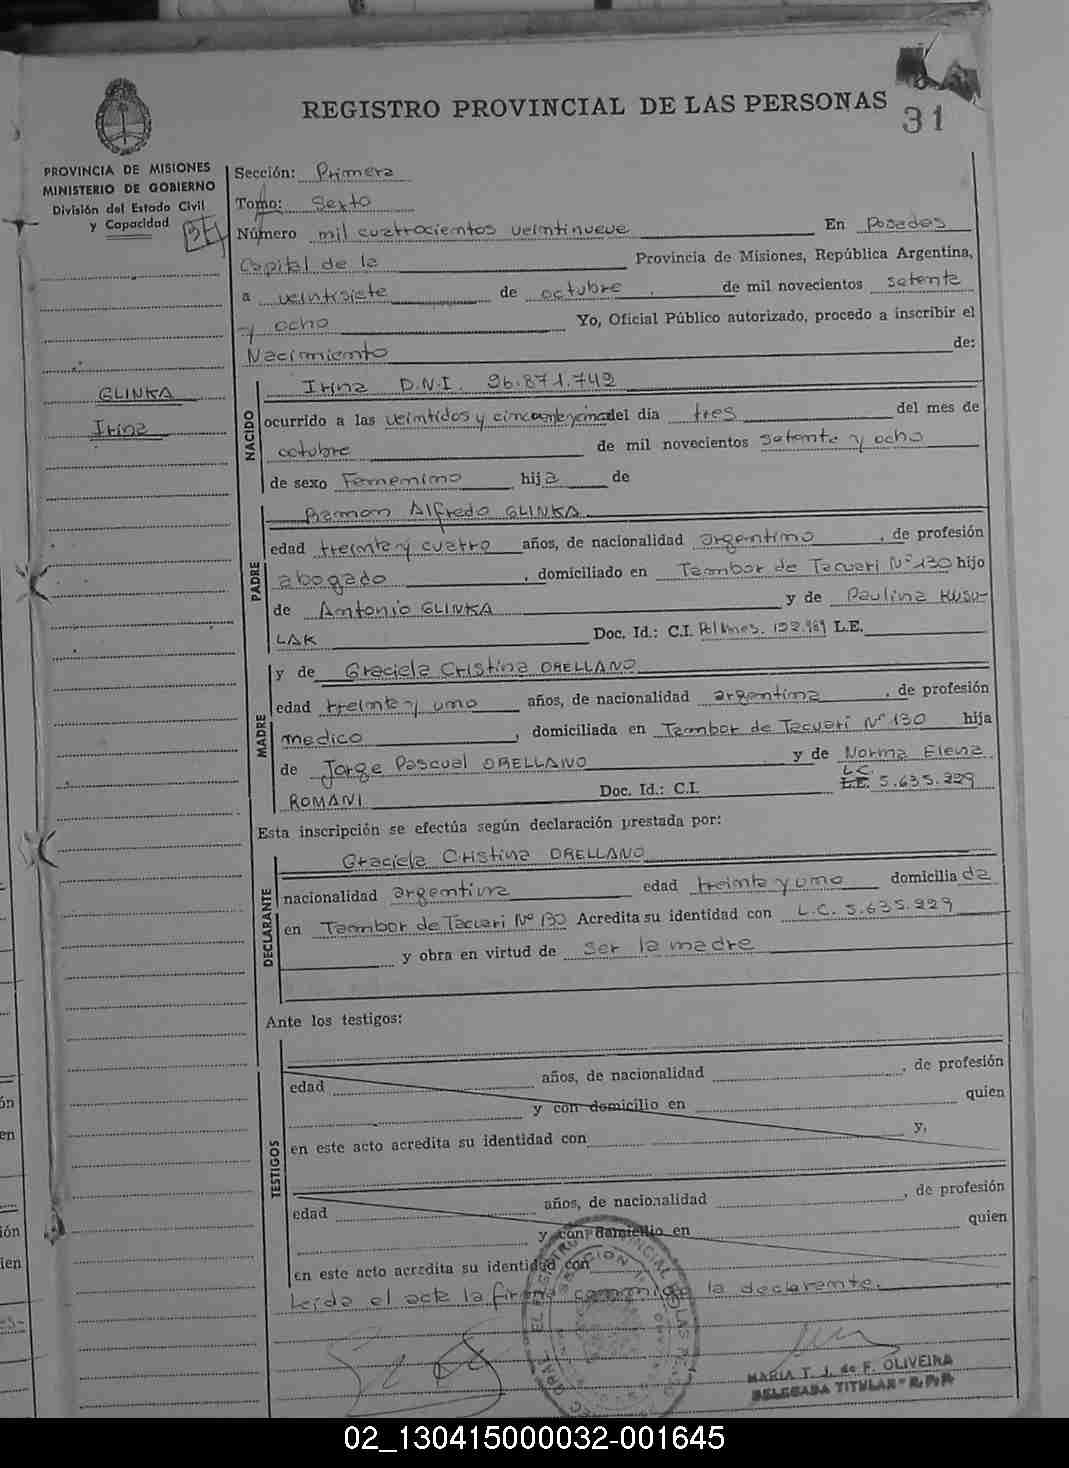 REGISTRO PROVINCIAL DE LAS PERSONAS
31
PROVINCIA DE MISIONES
MINISTERIO DE GOBIERNO
División del Estado Civil
y Capacidad
GLINKA
Irina
Sección: Primera
Tomo: Sexto
Número mil cuatrocientos veintinueve En Posadas
Capital de la Provincia de Misiones, República Argentina,
a veintisiete de octubre de mil novecientos setenta
y ocho Yo, Oficial Público autorizado, procedo a inscribir el
Nacimiento de:
NACIDO
Irina D.N.I. 26.871.742
ocurrido a las veintidos y cincuenta y cinco del día tres del mes de
octubre de mil novecientos setenta y ocho
de sexo Femenino hija de
PADRE
Ramon Alfredo GLINKA
edad treinta y cuatro años, de nacionalidad argentino, de profesión
abogado, domiciliado en Tambor de Tacuari Nº 130 hijo
de Antonio GLINKA y de Paulina KUSU-
LAK Doc. Id.: C.I. Pol Mnes. 122.969 L.E.
MADRE
y de Graciela Cristina ORELLANO
edad treinta y uno años, de nacionalidad argentina, de profesión
medico, domiciliada en Tambor de Tacuari Nº 130 hija
de Jorge Pascual ORELLANO y de Norma Elena
ROMANI Doc. Id.: C.I. L.C. L.E. 5.635.229
Esta inscripción se efectúa según declaración prestada por:
DECLARANTE
Graciela Cristina ORELLANO
nacionalidad argentina edad treinta y uno domiciliada
en Tambor de Tacuari Nº 130 Acredita su identidad con L.C. 5.635.229
y obra en virtud de ser la madre
Ante los testigos:
TESTIGOS
edad años, de nacionalidad , de profesión
y con domicilio en quien
en este acto acredita su identidad con y,
edad años, de nacionalidad , de profesión
y con domicilio en quien
en este acto acredita su identidad con
Leída el acta la firma conmigo la declarante.
MARIA T. J. de F. OLIVEIRA
DELEGADA TITULAR - R.P.P.
02_130415000032-001645